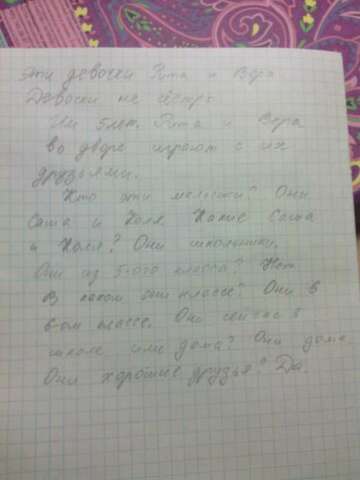 Эти девочки Рита и Вера
Девочки не сёстры
Им 5 лет. Рита и Вера
во дворе играют с их
друзьями.
Кто эти мальчики? Они
Саша и Коля Какие Саша
и Коля? Они школьники.
Они из 5-ого класса? Нет
В каком они классе? Они в
6-ом классе. Они сейчас в
школе или дома? Они дома
Они хорошие друзья? Да.